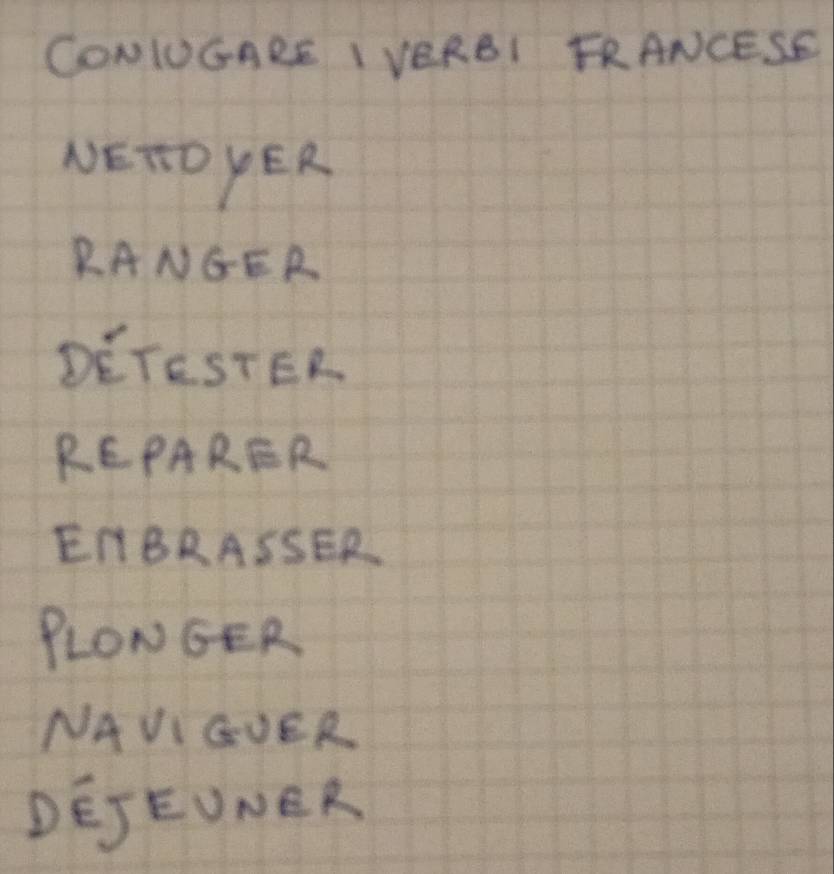 CONIUGARE I VERBI FRANCESE
NETTOYER
RANGER
DÉTESTER
REPARER
EMBRASSER
PLONGER
NAVIGUER
DÉJEUNER